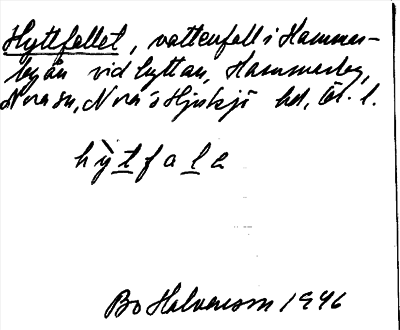 Hyttfallet, vattenfall i Hammar-
byån vid hyttan, Hammarby,
Nora sn, Nora o Hjulsjö hd, Ör. l.
hy̆t̲fal̲a
Bo Halvarson 1946